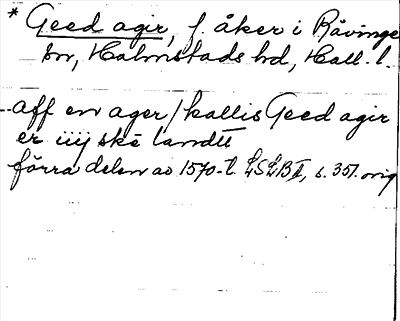 * Geed agir, f. åker i Råvinge
sn, Halmstads hd, Hall. l.
--aff en ager / kallis Geed agir
er iiij ske landtt
förra delen av 1570-t. LSLB II, s. 351. orig